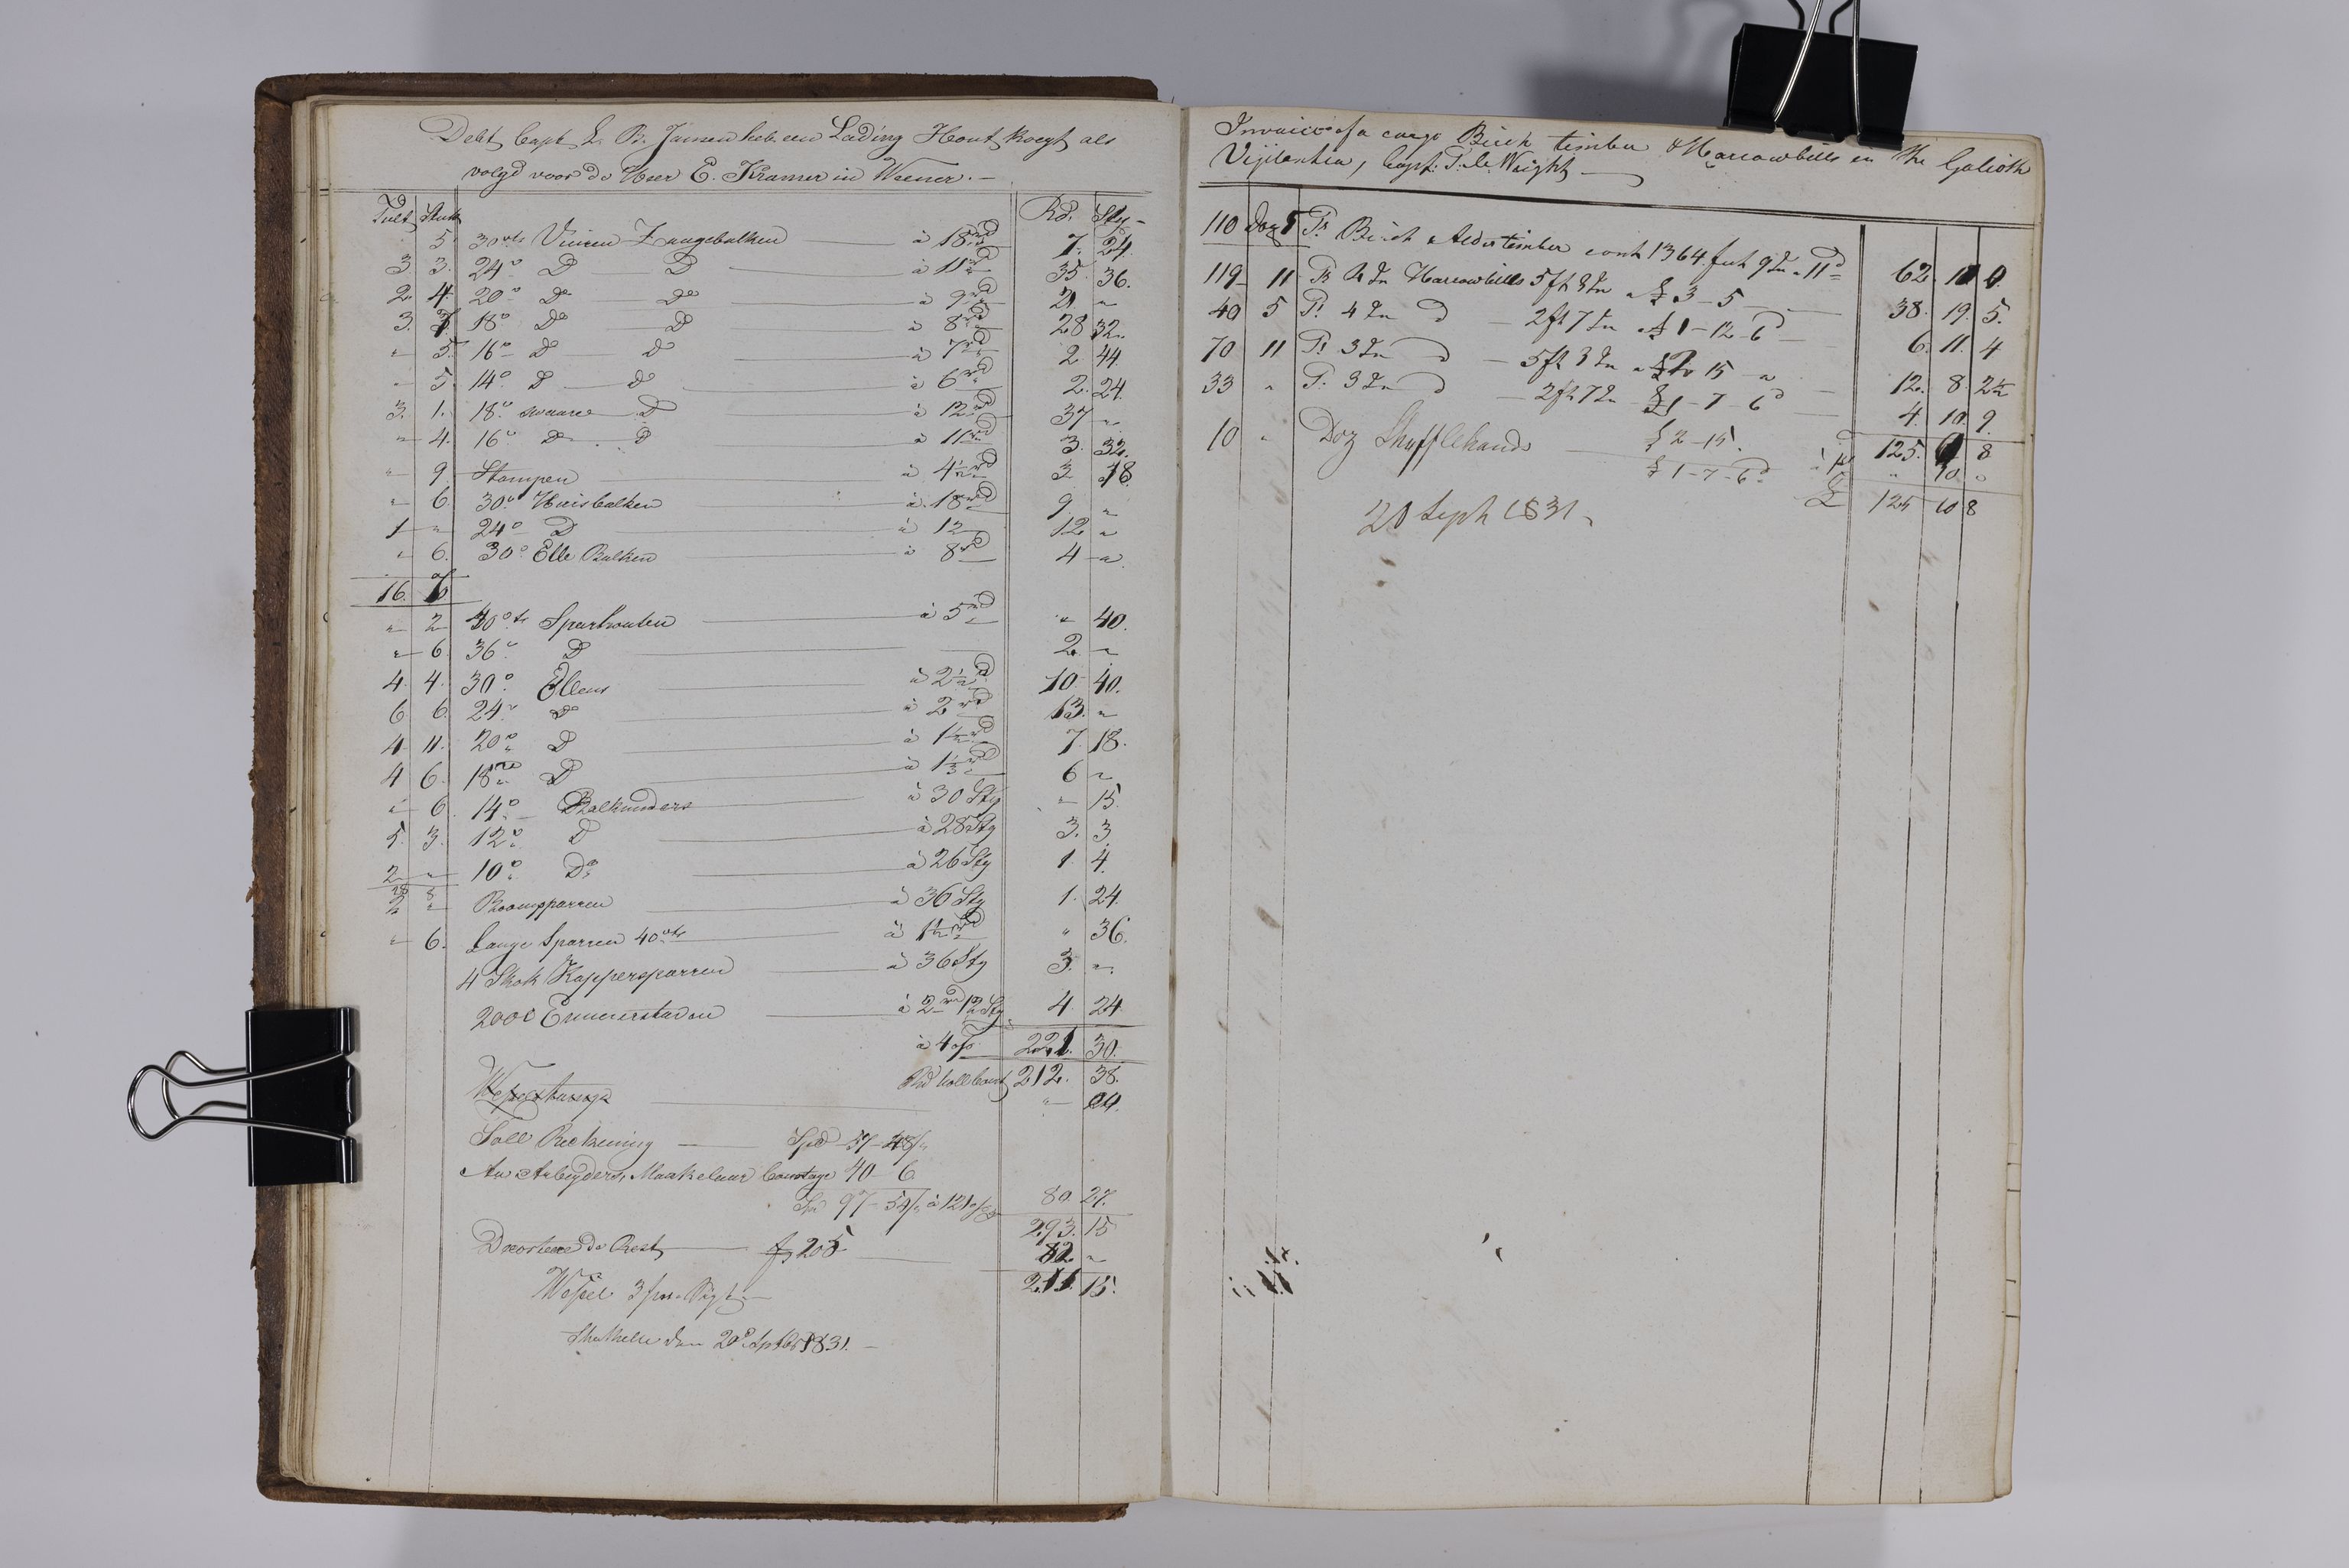 Debt Capt L. B. Jansen heb een Lading Hout kocgt als
volgd voor de Heer E. Kramer in Weener. —
Tult Stuk Rd. Sty
5. 30vts Vuiren Langebalken à 18rd 7. 24
3. 3. 24° D D à 11rd 35. 36.
2. 4. 20° Do Do à 9rd 21 "
3. 7 18° Do D à 8rd 28 32
" 5. 16° D Do à 7rd 2. 44.
" 5. 14° D Do à 6rd 2. 24.
3. 1. 18° swaare D à 12rd 37 "
" 4. 16° D D à 11rd 3. 32.
" 9. Stampen à 4½rd 3 18
" 6. 30° Huisbalken à 18rd 9. "
1 " 24° D à 12 12 "
" 6. 30° Elle Balken à 8rd 4 "
16. 7
" 2 40vts Sparhouten à 5rd " 40.
" 6. 36° D 2. "
4. 4. 30° Ellens à 2½rd 10 40.
6 6. 24° Do à 2rd 13. "
4 11. 20° D à 1½rd 7. 18.
4 6. 18° D à 1⅓rd 6 "
" 6. 14° Balkunders à 30 Sty " 15.
5. 3. 12° D à 28 Sty 3. 3.
2 " 10° Do à 26 Sty 1. 4.
28 8
2 " Boomsparren à 36 Sty 1. 24.
" 6. Lange Sparren 40vts à 1½rd " 36.
4 Skok Kappersparren à 36 Sty 3. "
2000 Emmerstaven à 2rd 12 Sty. 4 24
à 4 % 221. 30.
Rd Holl Court 212. 38.
" 24.
Toll Reckening Spd 57 - 48/"
An Arbeyders, Maakelaar Courtage 40 - 6
Spd 97 - 54/ à 121 80. 27.
293. 15
de Rest f 205 82. "
211. 15.
Wessel 3 Sigt
den 20° Septbr 1831. —
Invoice of a cargo Birch timber & Harrowbills in the Galioth
Vijilantia, Capt. T. D. Wright
110 Doz 5 Ps Birch & Aldertimber cont 1364 feet 9 In à 11d 62. 10 0
119 11 Ps 4 In Harrowbills 5 ft 3 In à £ 3 - 5 38. 19. 5.
40 5 Ps 4 In D 2 ft 7 In à £ 1 - 12 - 6d 6. 11. 4
70 11 Ps 3 In D 5 ft 3 In à £ 15 " 12. 8. 2½
33 " Ps 3 In D 2 ft 7 In £ 1 - 7 - 6d 4. 10. 9.
10 " Doz Shufflehands £ 2 - 15. 125. 0 8
£ 1 - 7 - 6d " 10 "
£ 125 10 8
20 Septr 1831.